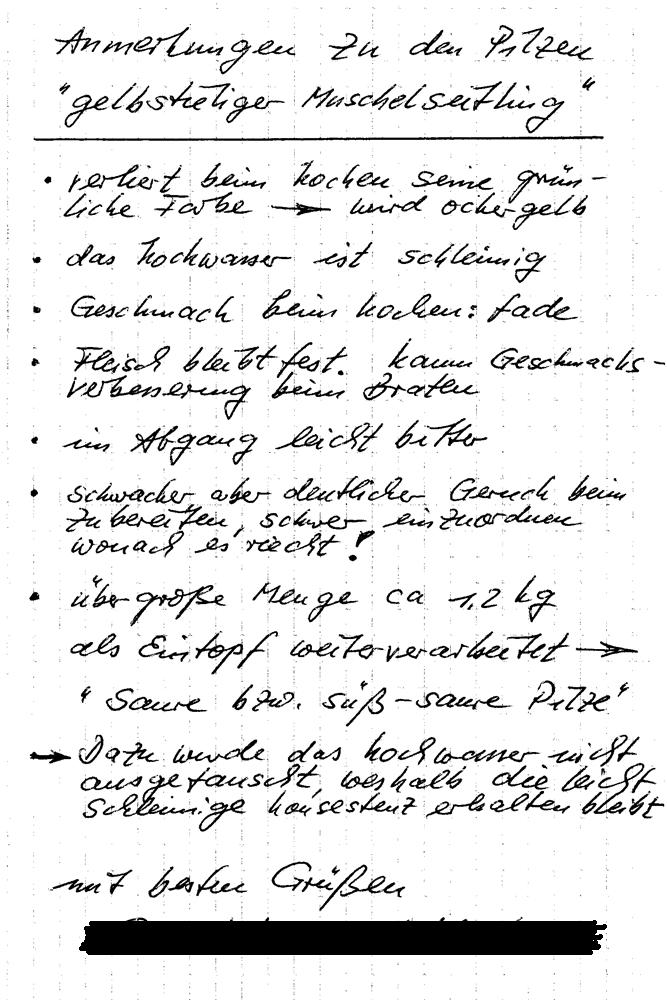 Anmerkungen zu den Pilzen
"gelbstieliger Muschelseitling"
• verliert beim kochen seine grün-
liche Farbe → wird ockergelb
• das Kochwasser ist schleimig
• Geschmack beim kochen: fade
• Fleisch bleibt fest. kaum Geschmacks-
verbesserung beim Braten
• im Abgang leicht bitter
• schwacher aber deutlicher Geruch beim
zubereiten, schwer einzuordnen
wonach es riecht!
• übergroße Menge ca 1,2 kg
als Eintopf weiterverarbeitet →
"Saure bzw. süß-saure Pilze"
→ Dazu wurde das Kochwasser nicht
ausgetauscht, weshalb die leicht
schleimige konsestenz erhalten bleibt
mit besten Grüßen